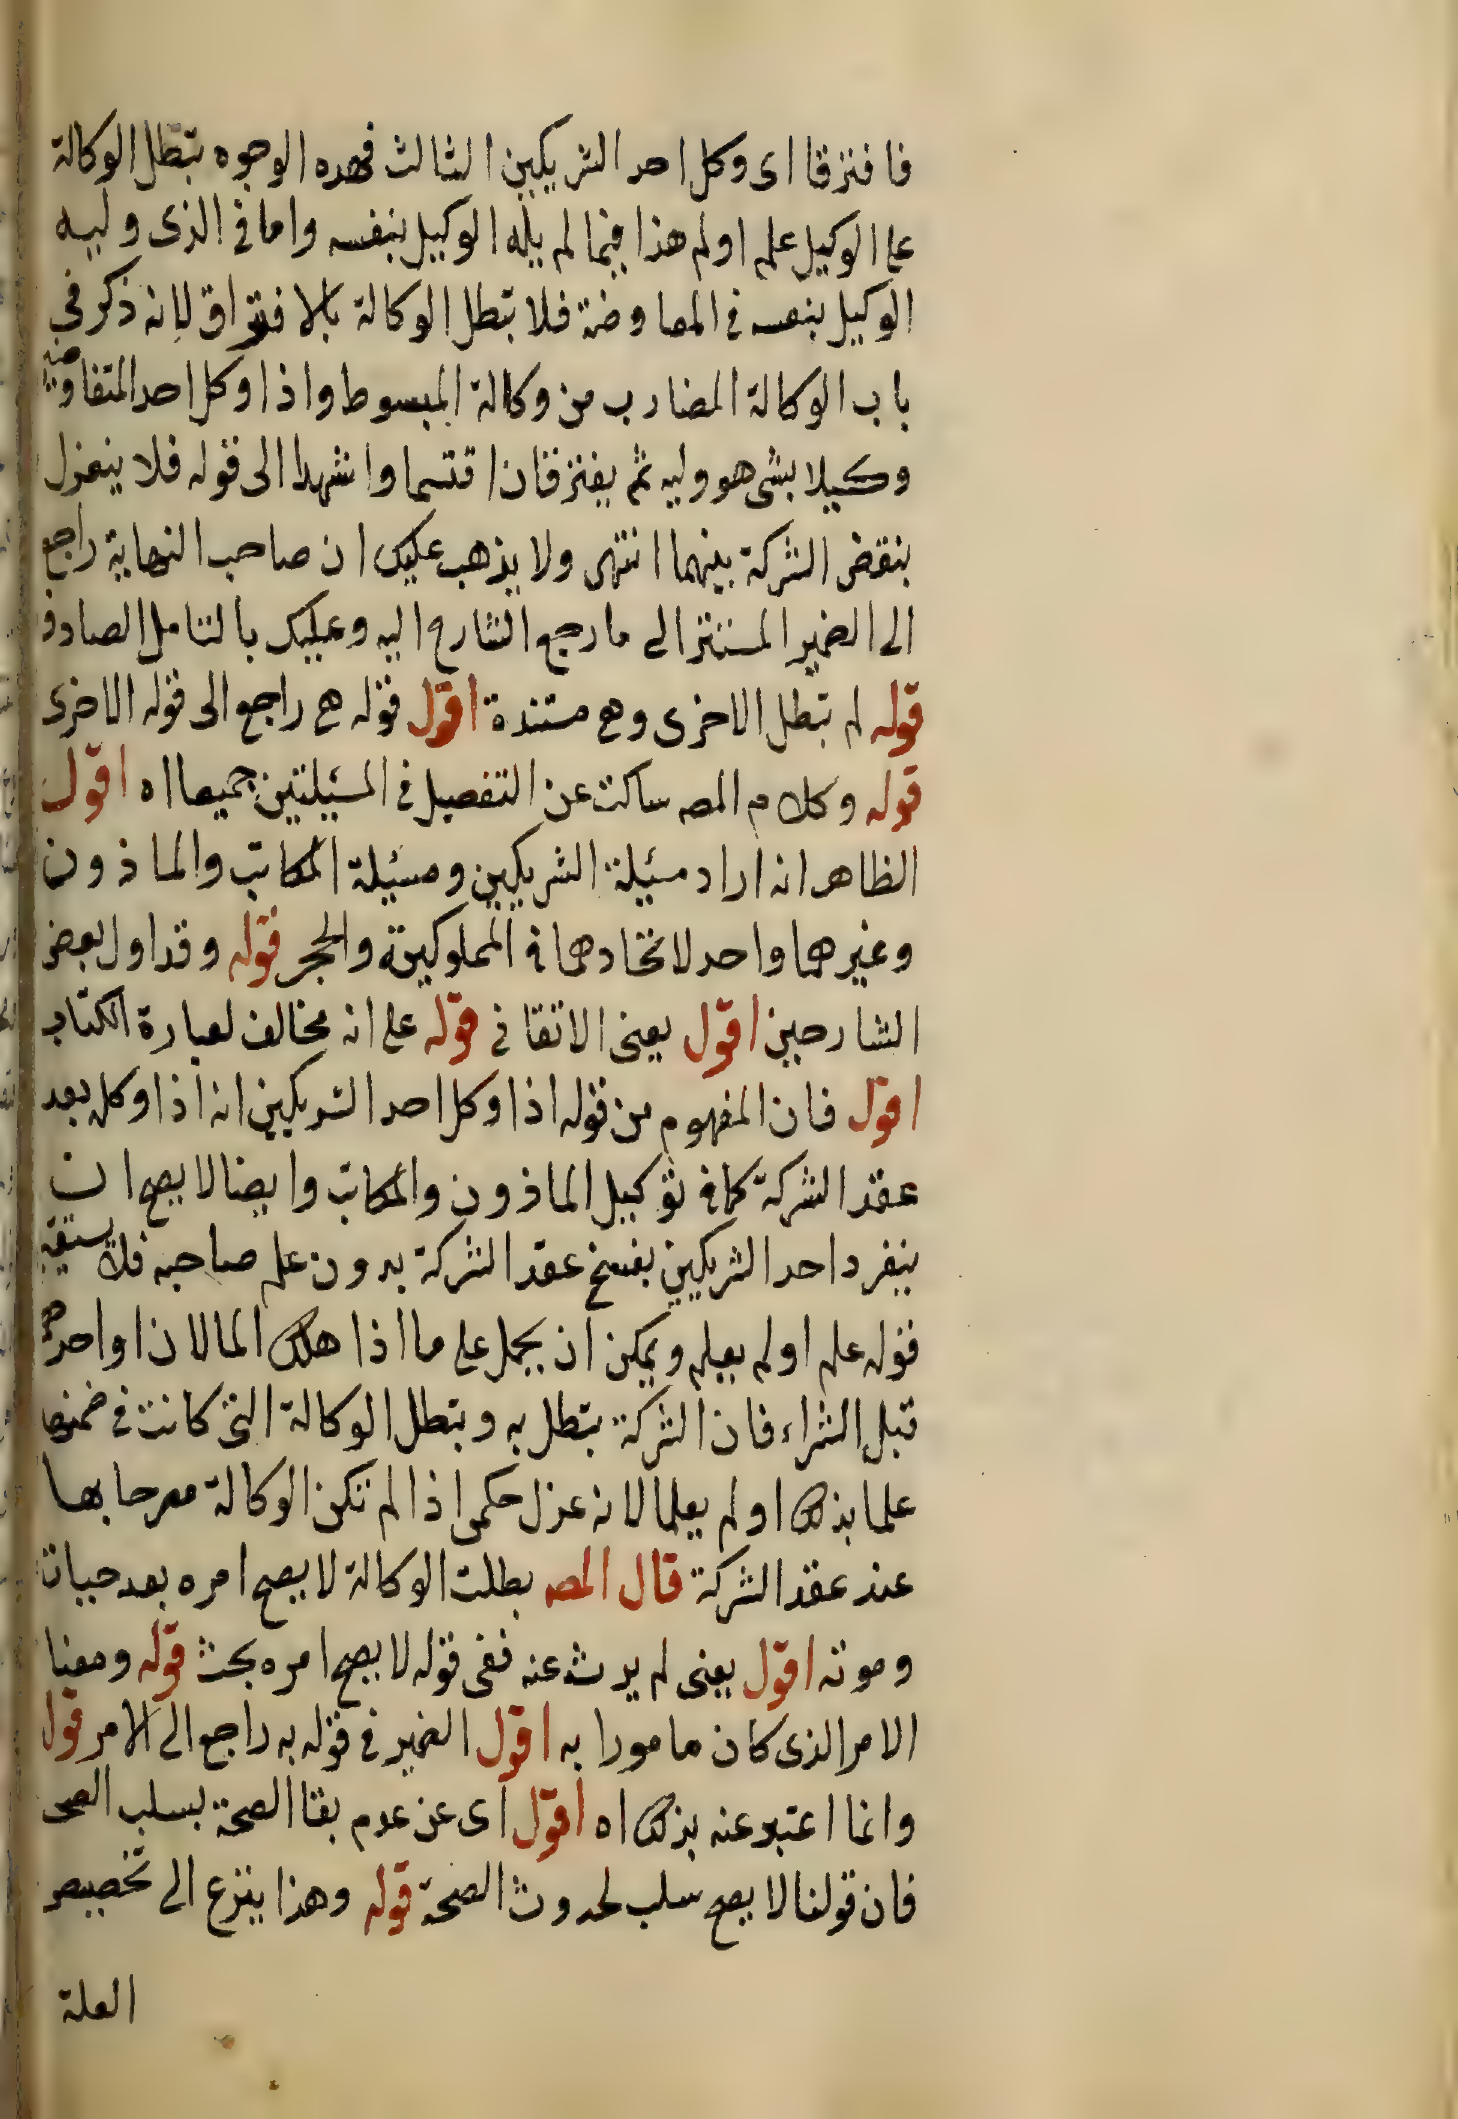 فافترقا اى وكل احد الشريكين الثالث فهده الوجوه تبطل الوكالة
على الوكيل علم اولم هذا فيما لم يله الوكيل بنفسه واما في الذى وليه
الوكيل بنفسه في المعاوضة فلا تبطل الوكالة بالافتراق لانه ذكر في
باب الوكالة المضارب من وكالة المبسوط واذا وكل احد المتفاوضين
وكيلا بشى هو وليه ثم يفترقان اقتسما واشهدا الى قوله فلا ينعزل
بنقض الشركة بينهما انتهى ولا يذهب عليك ان صاحب النهاية راجع
الى الضمير المستتر الى ما رجع الشارح اليه وعليك بالتامل الصادق
قوله لم تبطل الاخرى وهى مستندة اقول قوله هى راجع الى قوله الاخرى
قوله وكلام المصه ساكت عن التفصيل في المسئيلتين جميعا اه اقول
الظاهر انه اراد مسئيلة الشريكين ومسئيلة المكاتب والماذون
وغيرهما واحد لاتحادهما في المملوكية والحجر قوله وقد اول بعض
الشارحين اقول يعنى الاتقانى قوله على انه مخالف لعبارة الكتاب
اقول فان المفهوم من قوله اذا وكل احد الشريكين انه اذا وكله بعد
عقد الشركة كما في توكيل الماذون والمكاتب وايضا لا يصح ان
ينفرد احد الشريكين بفسخ عقد الشركة بدون علم صاحبه فلا يستقيم
قوله علم اولم يعلم ويمكن ان يحمل على ما اذا هلك المالان او احدهما
قبل الشراء فان الشركة تبطل به وتبطل الوكالة التى كانت في ضمنها
علما بذلك او لم يعلما لانه عزل حكمى اذا لم تكن الوكالة مصرحا بها
عند عقد الشركة قال المصه بطلت الوكالة لا يصح امره بعد حياته
وموته اقول يعنى لم يرث عنه ففى قوله لا يصح امره بحث قوله ومعنا
الامر الذى كان مامورا به اقول الضمير في قوله به راجع الى الامر قول
وانما اعتبر عنه بذلك اه اقول اى عن عدم بقا الصحة بسلب الصح
فان قولنا لا يصح سلب لحدوث الصحة قوله وهذا ينزع الى تخصيص
العلة